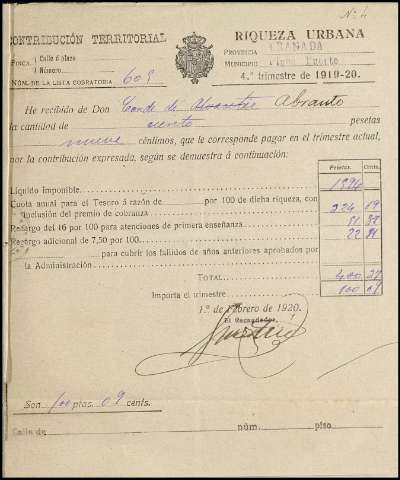 Nº 4
CONTRIBUCIÓN TERRITORIAL
RIQUEZA URBANA
FINCA. Calle ó plaza
Número
PROVINCIA GRANADA
MUNICIPIO
NÚM. DE LA LISTA COBRATORIA 605
4.º trimestre de 1919-20.
He recibido de Don Conde de Abrantes
la cantidad de ciento pesetas
nueve céntimos, que le corresponde pagar en el trimestre actual,
por la contribución expresada, según se demuestra á continuación:
Pesetas Cénts.
Líquido Imponible. 1396
Cuota anual para el Tesoro á razón de por 100 de dicha riqueza, con
inclusión del premio de cobranza
Recargo del 16 por 100 para atenciones de primera enseñanza.
Recargo adicional de 7,50 por 100.
para cubrir los fallidos de años anteriores aprobados por
la Administración
TOTAL 400
Importa el trimestre 100
1.º de Febrero de 1920.
El Recaudador
Son 100 ptas 09 cents.
Calle de núm. piso